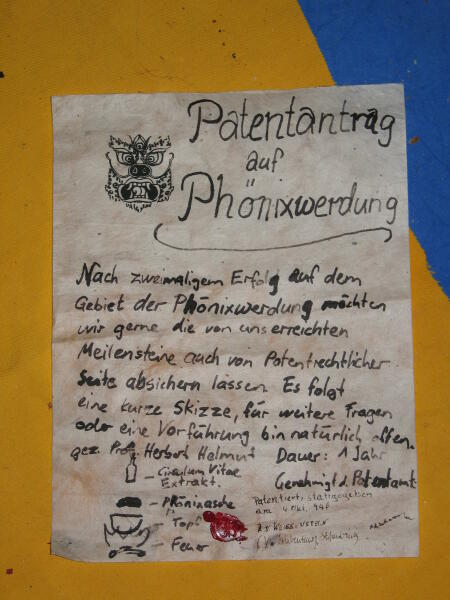 Patentantrag
auf
Phönixwerdung
Nach zweimaligem Erfolg auf dem
Gebiet der Phönixwerdung möchten
wir gerne die von uns erreichten
Meilensteine auch von Patentrechtlicher
Seite absichern lassen. Es folgt
eine kurze Skizze, für weitere Fragen
oder eine Vorführung bin natürlich offen.
gez. Prof. Herbert Helmut
Dauer: 1 Jahr
Genehmigt d. Patentamt:
- Vitae
Extrakt.
- Phönixasche
- "Topf"
- Feuer
Patentiert, stattgegeben
am 4.